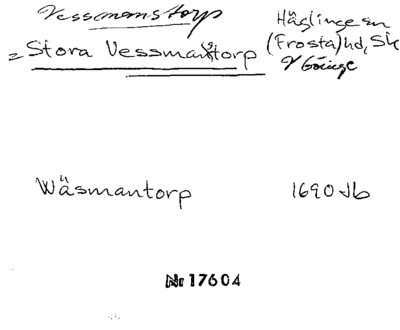 Vessmanstorp
= Stora Vessmantorp
Häglinge sn
(Frosta) hd, Sk
V Göinge
Wäsmantorp 1690 Jb
Nr 17604